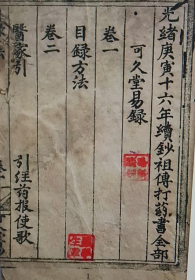 光緒庚寅十六年續鈔祖傳打药書全部
可久堂易録
卷一
目録方法
卷二
醫家引
引经药报使歌